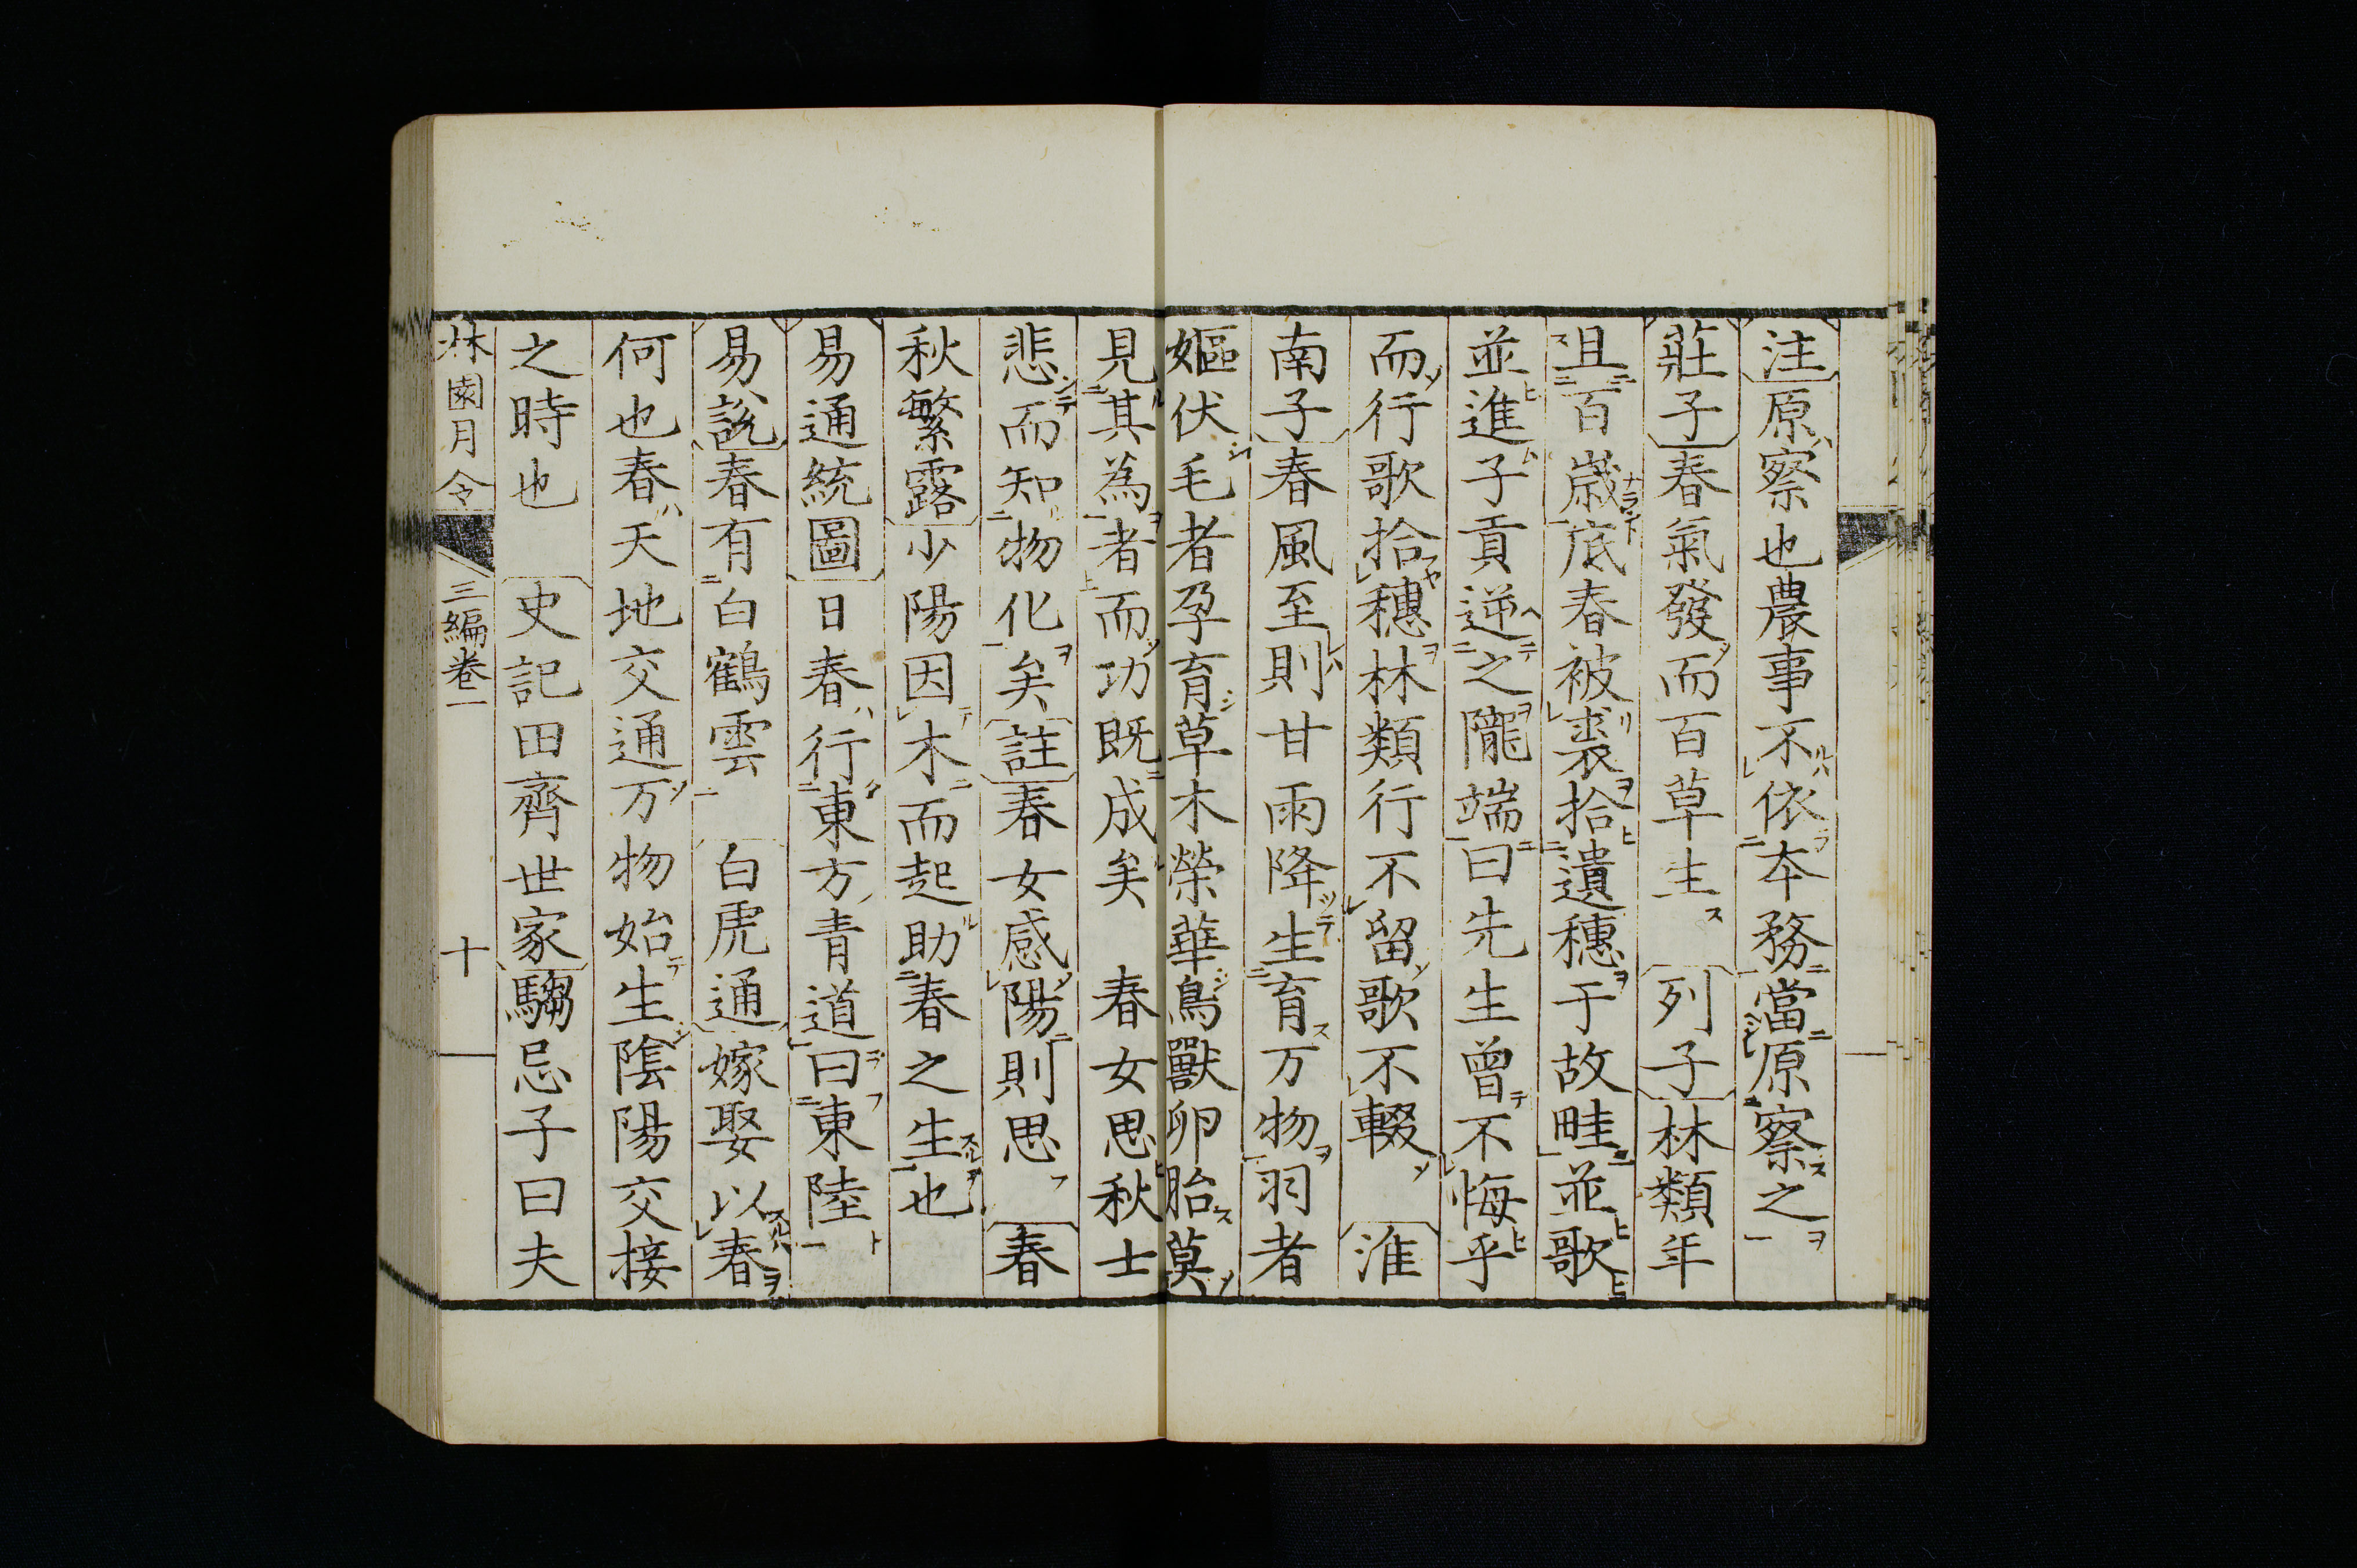 注原察也農事不依本務當原察之
莊子春氣發而百草生　列子林類年
且百歳底春被裘拾遺穗于故畦並歌
並進子貢逆之隴端曰先生曾不悔乎
而行歌拾穗林類行不留歌不輟　淮
南子春風至則甘雨降生育万物羽者
嫗伏毛者孕育草木榮華鳥獸卵胎莫
見其為者而功既成矣　春女思秋士
悲而知物化矣註春女感陽則思　春
秋繁露少陽因木而起助春之生也
易通統圖日春行東方青道曰東陸
易説春有白鶴雲　白虎通嫁娶以春
何也春天地交通万物始生陰陽交接
之時也　史記田齊世家騶忌子曰夫
林園月令　三編卷一　十